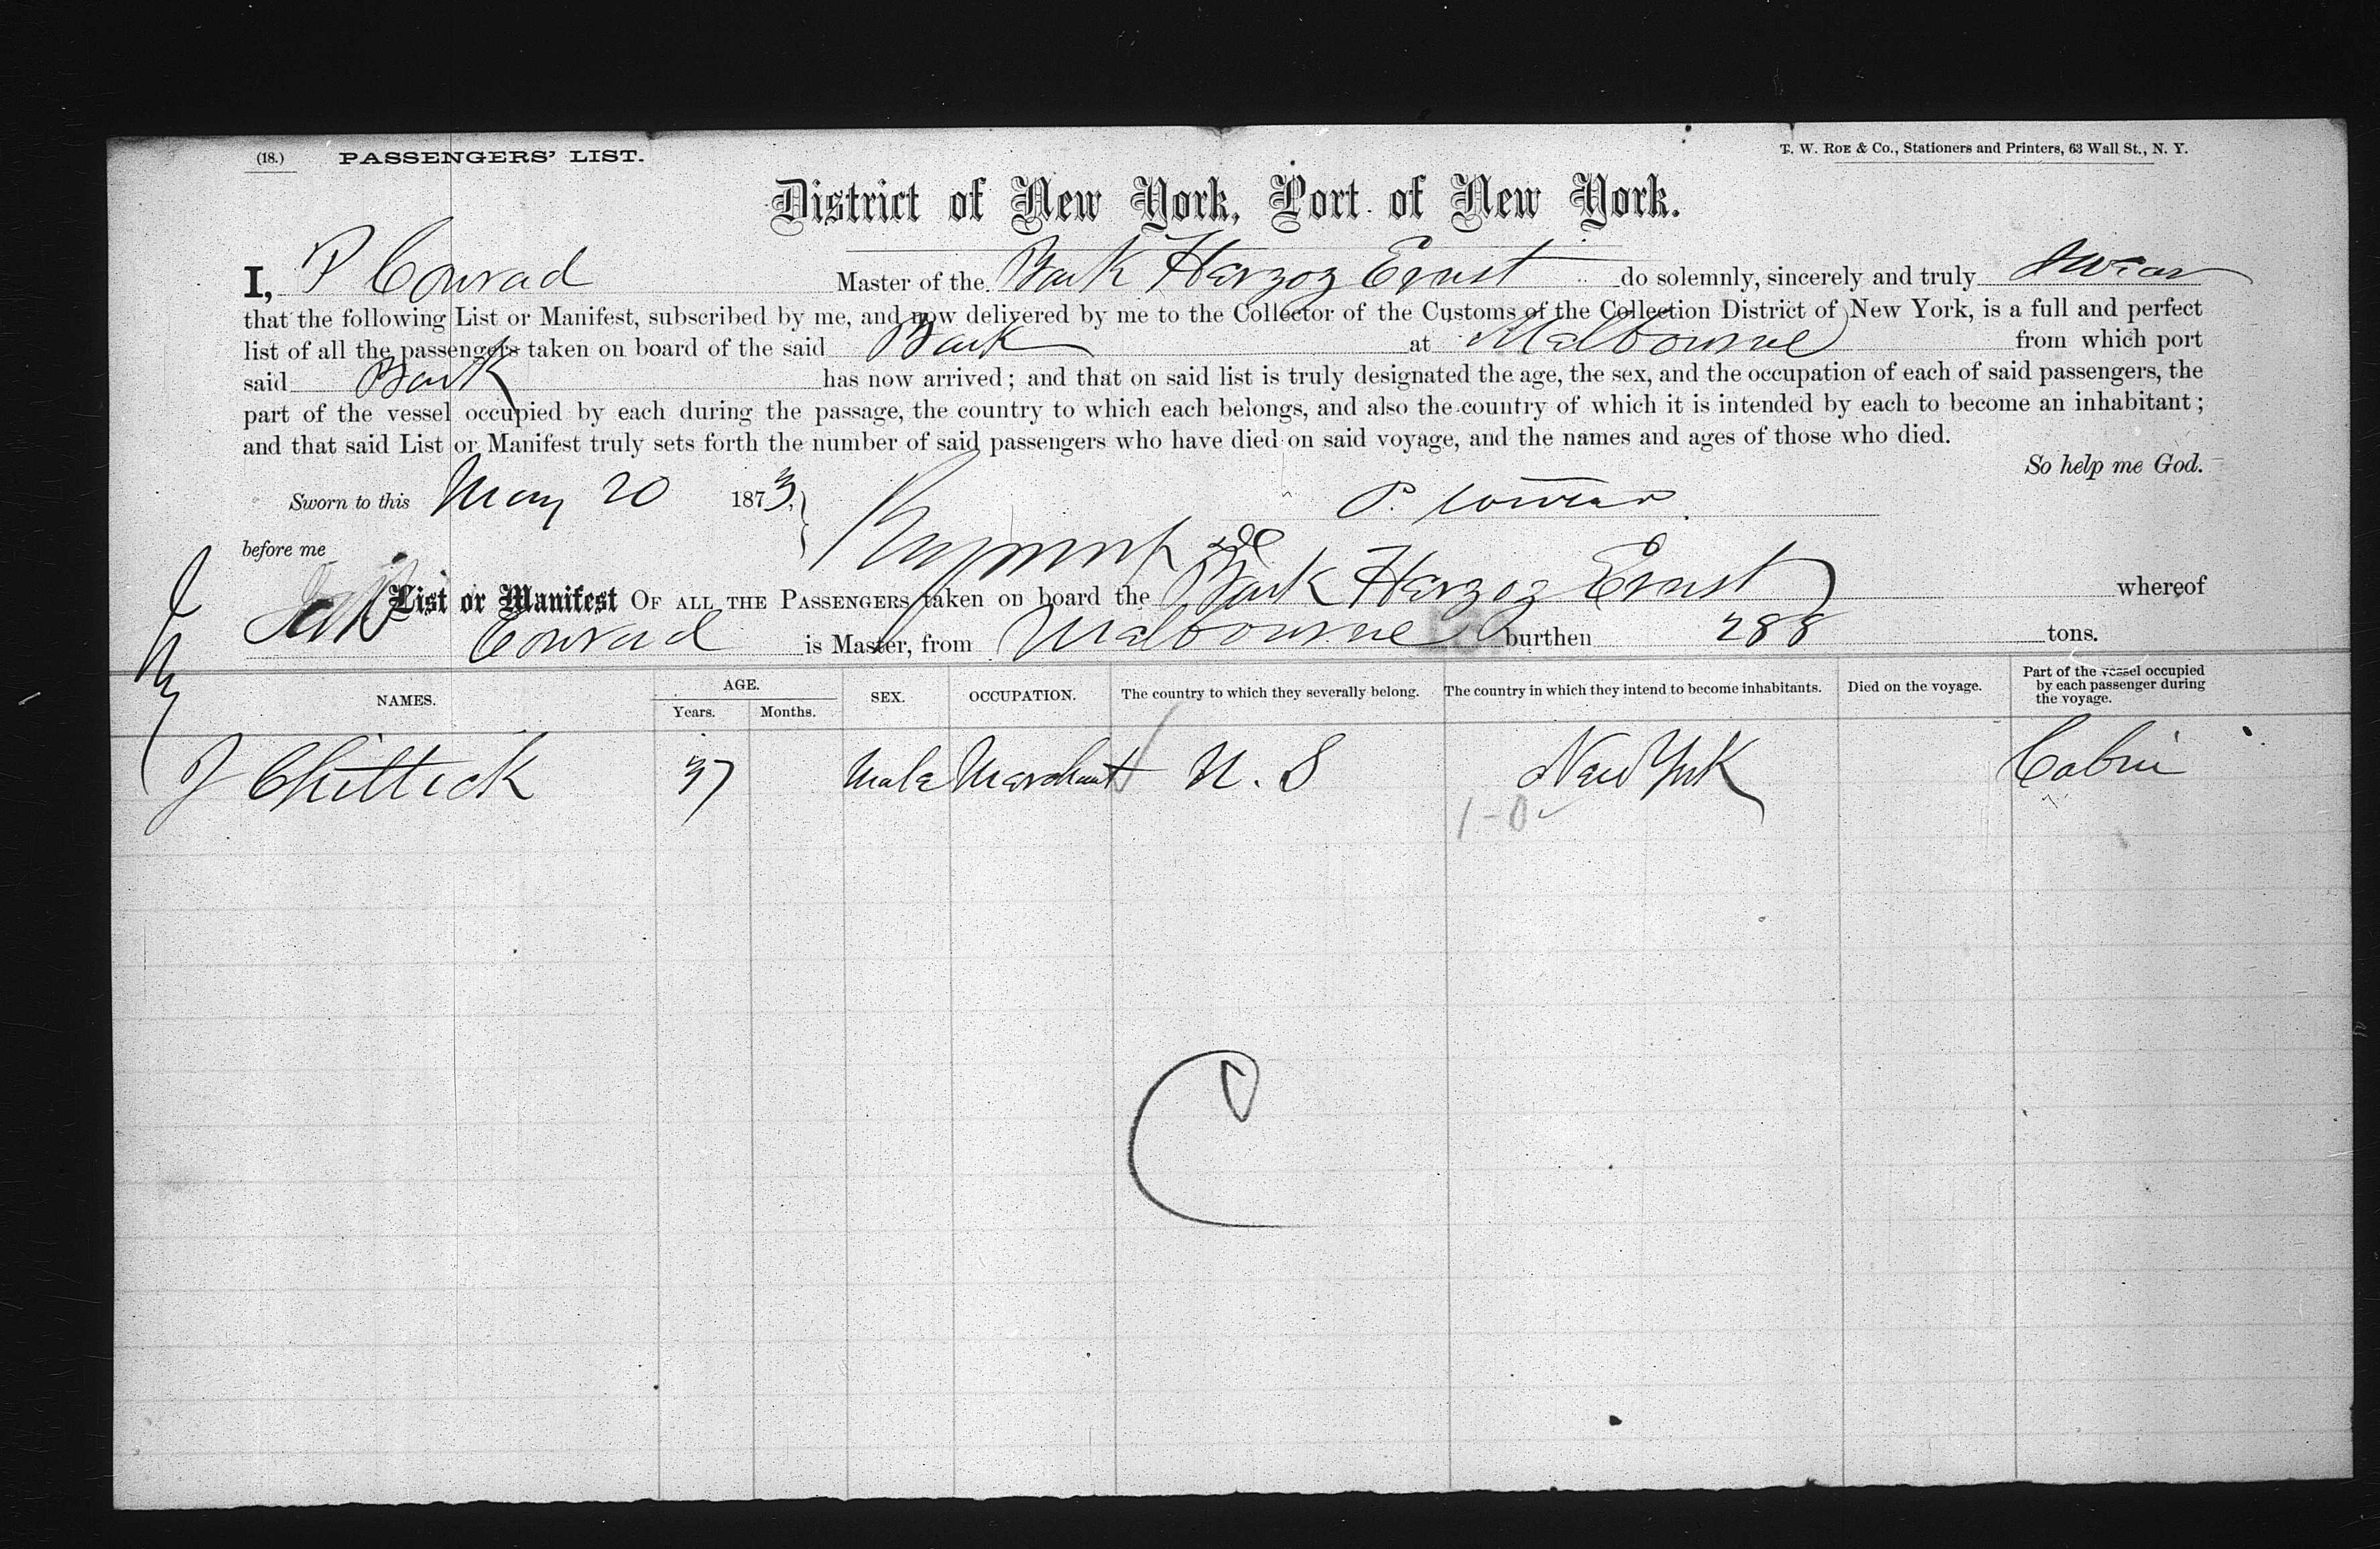 (18.) PASSENGERS' LIST.
T. W. ROE & Co., Stationers and Printers, 63 Wall St., N. Y.
District of New York, Port of New York.
I, P Conrad Master of the Bark Herzog Ernst do solemnly, sincerely and truly swear
that the following List or Manifest, subscribed by me, and now delivered by me to the Collector of the Customs of the Collection District of New York, is a full and perfect
list of all the passengers taken on board of the said Bark at Malbourne from which port
said Bark has now arrived; and that on said list is truly designated the age, the sex, and the occupation of each of said passengers, the
part of the vessel occupied by each during the passage, the country to which each belongs, and also the country of which it is intended by each to become an inhabitant;
and that said List or Manifest truly sets forth the number of said passengers who have died on said voyage, and the names and ages of those who died.
So help me God.
Sworn to this May 20 1873, P. Conrad
before me
List or Manifest OF ALL THE PASSENGERS taken on board the Bark Herzog Ernst whereof
Conrad is Master, from Malbourne burthen 288 tons.
NAMES. AGE. Years. Months. SEX. OCCUPATION. The country to which they severally belong. The country in which they intend to become inhabitants. Died on the voyage. Part of the vessel occupied by each passenger during the voyage.
J Chittick 37 Male Merchant U. S New York Cabin
1-0
C